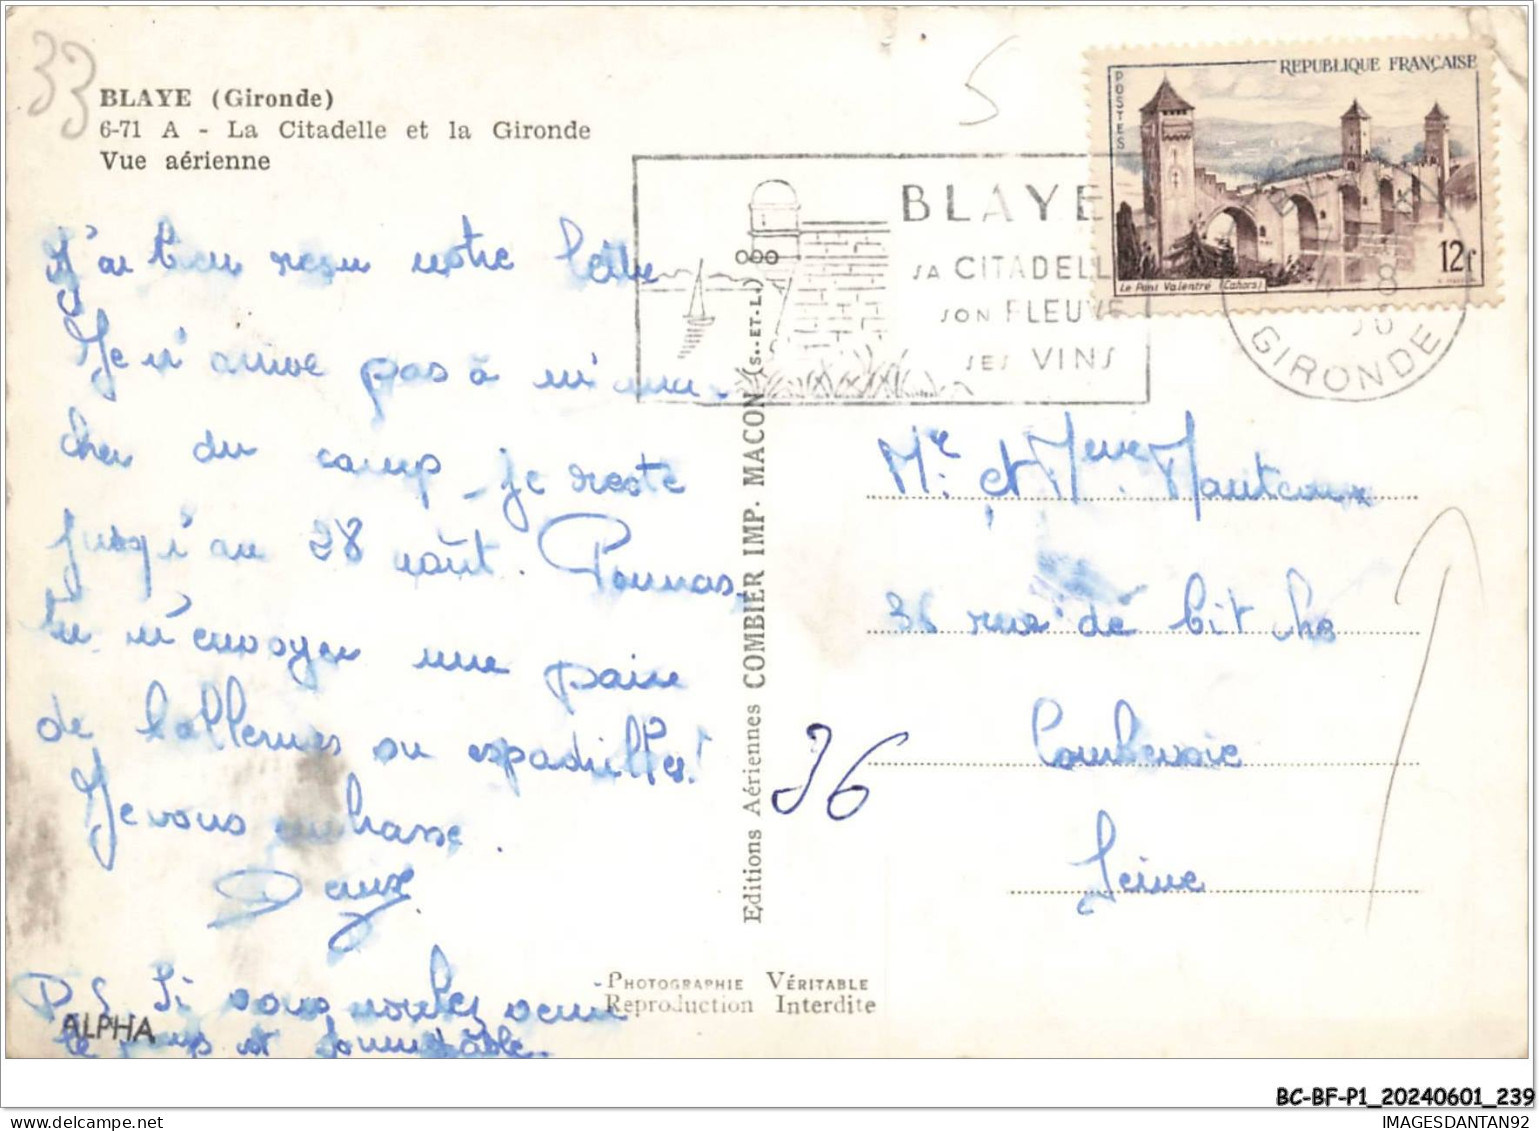 33
BLAYE (Gironde)
6-71 A - La Citadelle et la Gironde
Vue aérienne
J'ai bien reçu votre lettre
Je n'arrive pas à m'arra-
cher du camp, je reste
jusqu'au 28 août. Pourras-
tu m'envoyer une paire
de ballerines ou espadrilles!
Je vous embrasse.
P.S Si vous voulez venir
le temps est formidable.
ALPHA
Editions Aériennes COMBIER IMP. MACON (S.-ET-L.)
PHOTOGRAPHIE VÉRITABLE
Reproduction Interdite
S
BLAYE
SA CITADELLE
SON FLEUVE
SES VINS
GIRONDE
REPUBLIQUE FRANÇAISE
POSTES
12f
Le Pont Valentré (Cahors)
Mr. et Mme
36 rue de Bitche
Courbevoie
Seine
36
BC-BF-P1_20240601_239
IMAGESDANTAN92